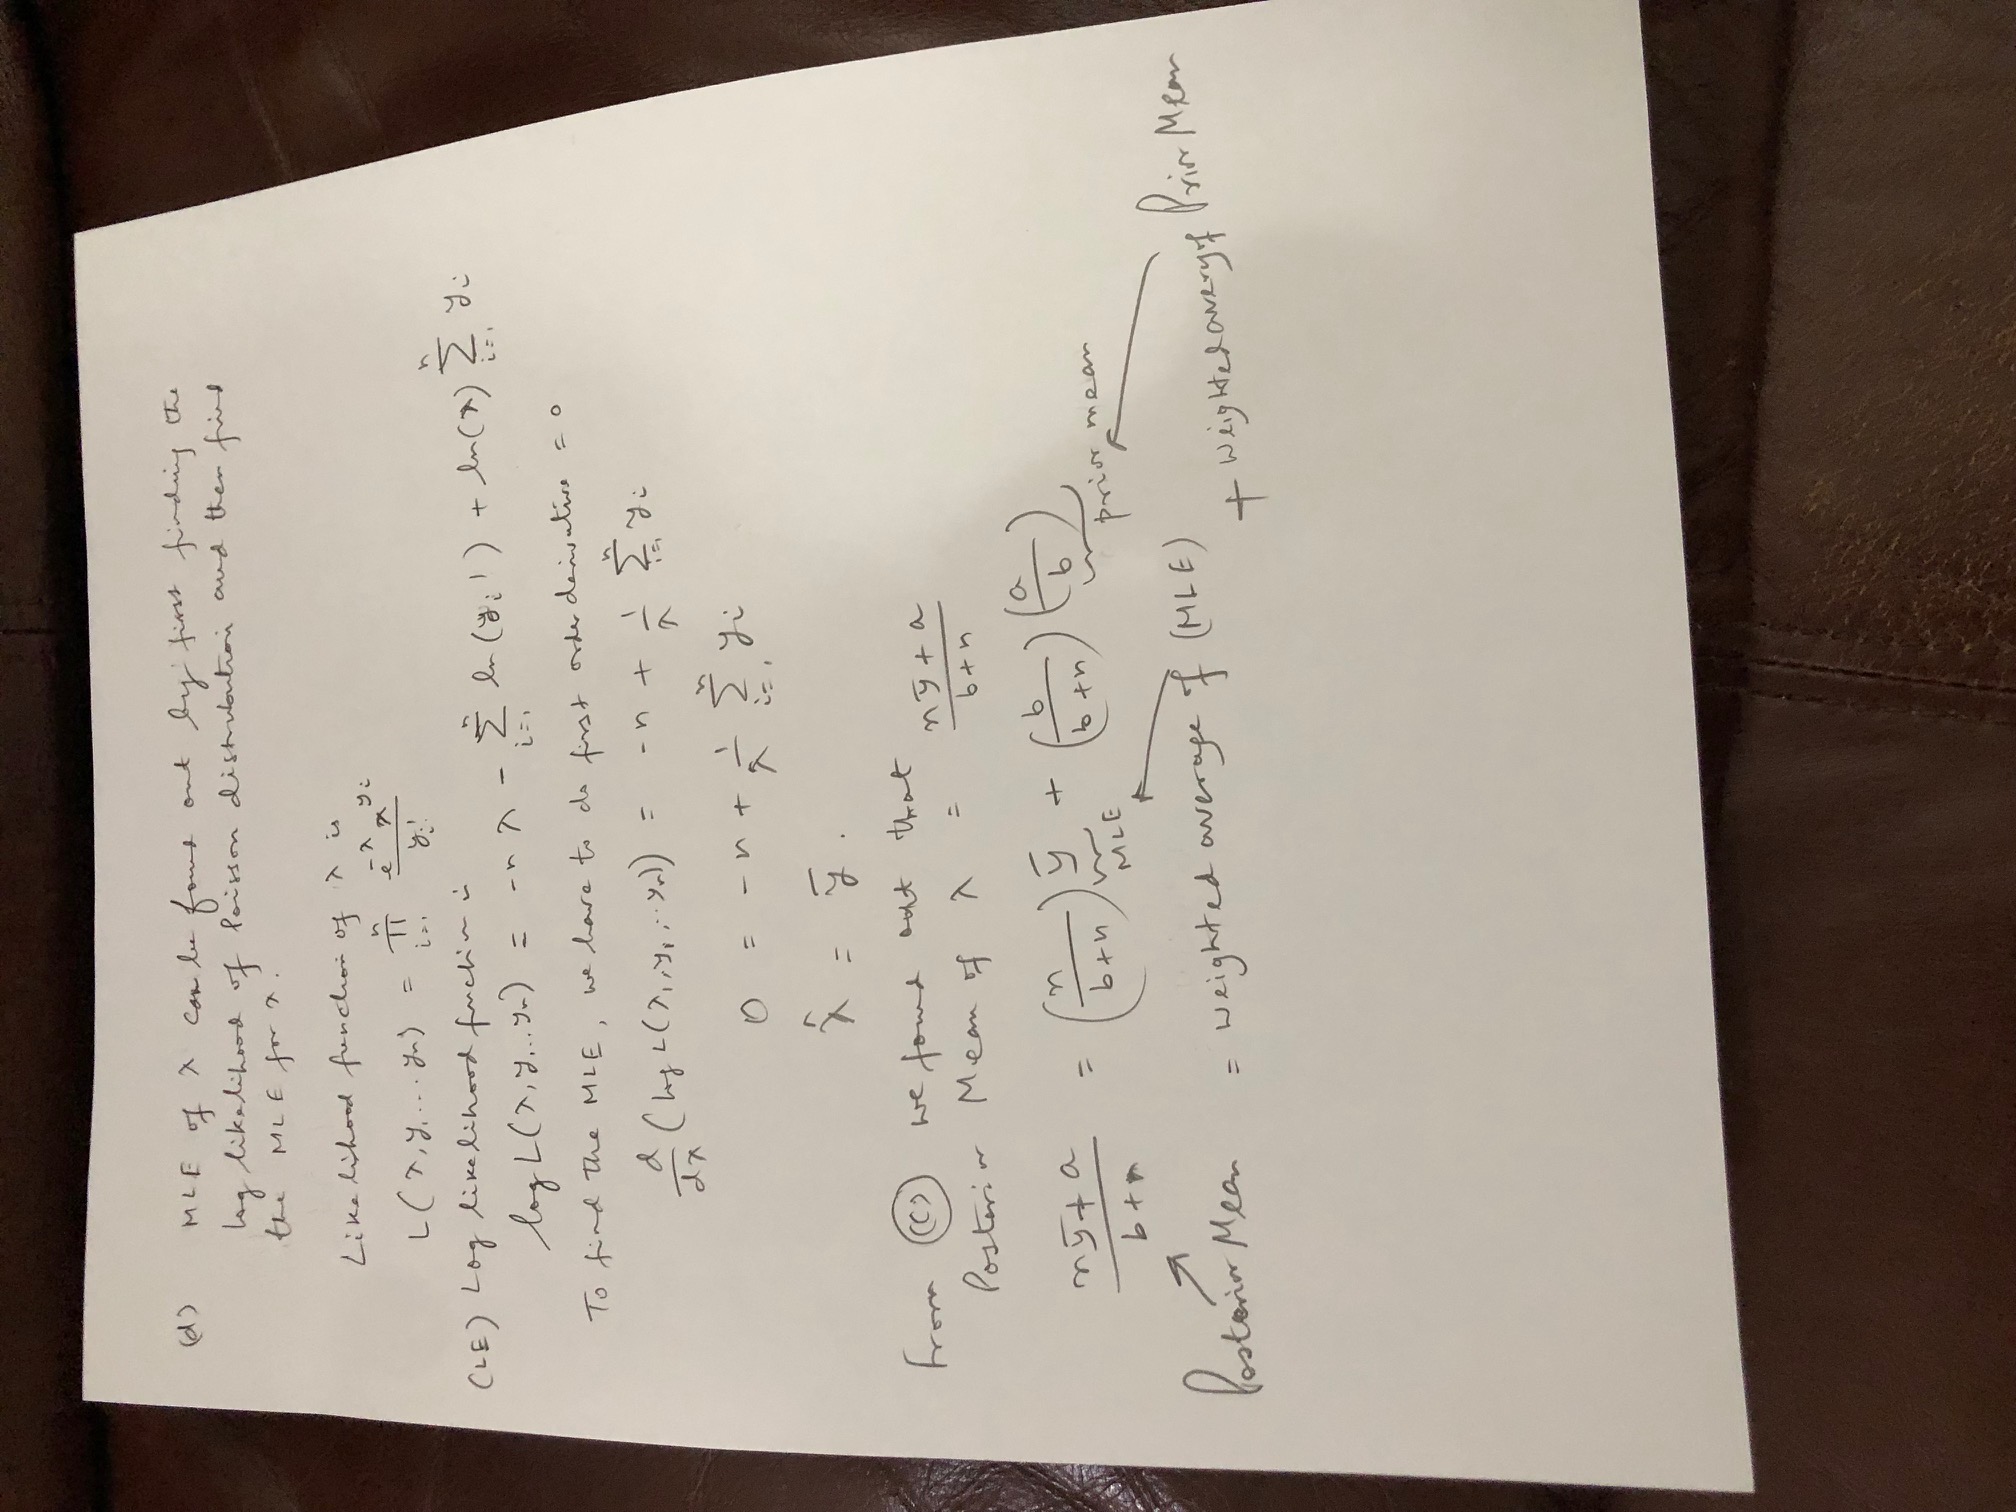 (d) MLE of λ can be found out by first finding the
log likelihood of Poisson distribution and then find
the MLE for λ.
Likelihood function of λ is
L(λ, y₁ ... yₙ) = ∏ᵢ₌₁ⁿ (e^(-λ) λ^(yᵢ)) / yᵢ!
(LE) Log likelihood function is
log L(λ, y₁...yₙ) = -nλ - ∑ᵢ₌₁ⁿ ln(yᵢ!) + ln(λ) ∑ᵢ₌₁ⁿ yᵢ
To find the MLE, we have to do first order derivative = 0
d/dλ (log L(λ₁, y₁, ... yₙ)) = -n + 1/λ ∑ᵢ₌₁ⁿ yᵢ
0 = -n + 1/λ ∑ᵢ₌₁ⁿ yᵢ
λ̂ = ȳ.
From (c) we found out that
Posterior Mean of λ = (nȳ + a) / (b+n)
(nȳ + a) / (b+n) = (n / (b+n)) ȳ + (b / (b+n)) (a / b)
MLE prior mean
Posterior Mean = weighted average of (MLE)
+ weighted avery of Prior Mean